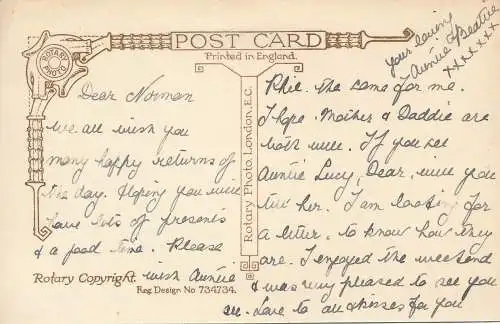 POST CARD
Printed in England.
ROTARY PHOTO
Dear Norman
We all wish you
many happy returns of
the day. Hoping you will
have lots of presents
& a good time. Please
wish Auntie
Rotary Copyright.
Reg. Design No 734734.
Rotary Photo, London, E.C.
Phil. the same for me.
I hope Mother & Daddie are
both well. If you see
Auntie Lucy, Dear, will you
tell her. I am looking for
a letter, to know how they
are. I enjoyed the weekend
& was very pleased to see you
all. Love to all & kisses for you
your loving
Auntie Beatrice
xxxxxxx